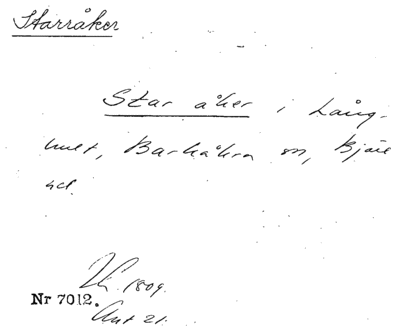 Starråker
Star åker i Lång-
hult, Barkåkra sn, Bjäre
hd.
1809.
Nr 7012.
Akt 21.